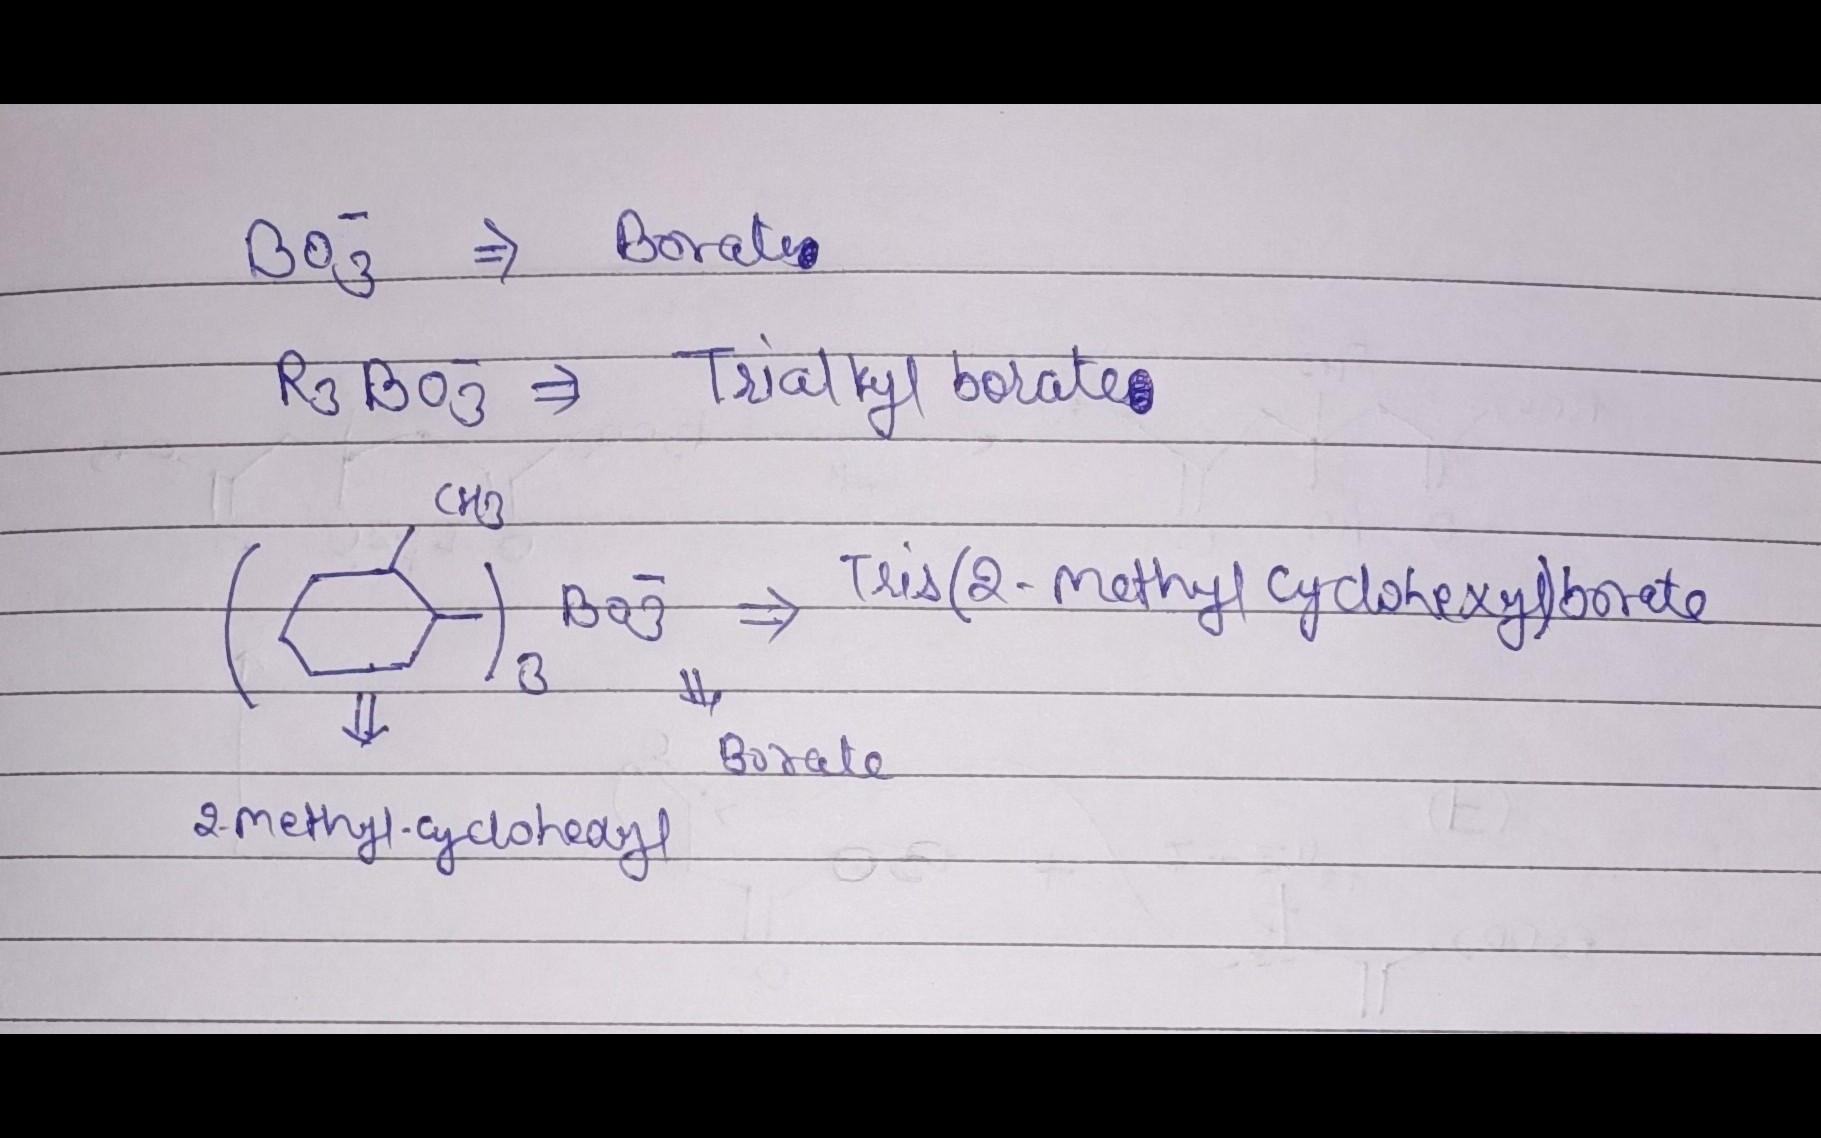 BO₃⁻ ⇒ Borate
R₃BO₃⁻ ⇒ Trialkyl borate
CH₃
( )₃ BO₃⁻ ⇒ Tris(2-Methyl Cyclohexyl)borate
⇓ ⇓
Borate
2-methyl-cyclohexyl